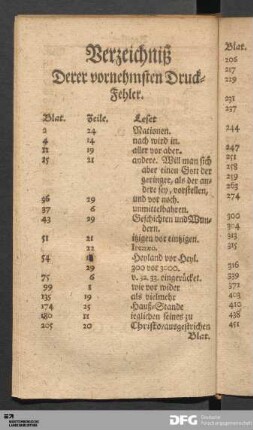 Verzeichniß
Derer vornehmsten Druck-
Fehler.
Blat. Zeile. Leset
2 24 Nationen.
4 14 nach wird in.
11 19 aller vor aber.
15 21 andere. Will man sich
aber einen Gott der
geringer, als der an-
dere sey, vorstellen,
36 29 und vor noch.
37 6 unmittelbahren.
43 29 Geschichten und Wun-
dern.
51 21 itzigen vor eintzigen.
22
54 Heyland vor Heyl.
29 300 vor 3000.
75 6 v. 32. 33. eingerücket.
99 8 wie vor wider
135 19 als vielmehr
174 25 Hauß-Stande
180 11 ieglichen seines zu
205 20 Christo/ausgestrichen
Blat.
Blat.
206
217
219
231
237
244
247
251
258
219
263
274
300
304
313
315
316
339
371
403
410
438
451
DFG Deutsche
Forschungsgemeinschaft